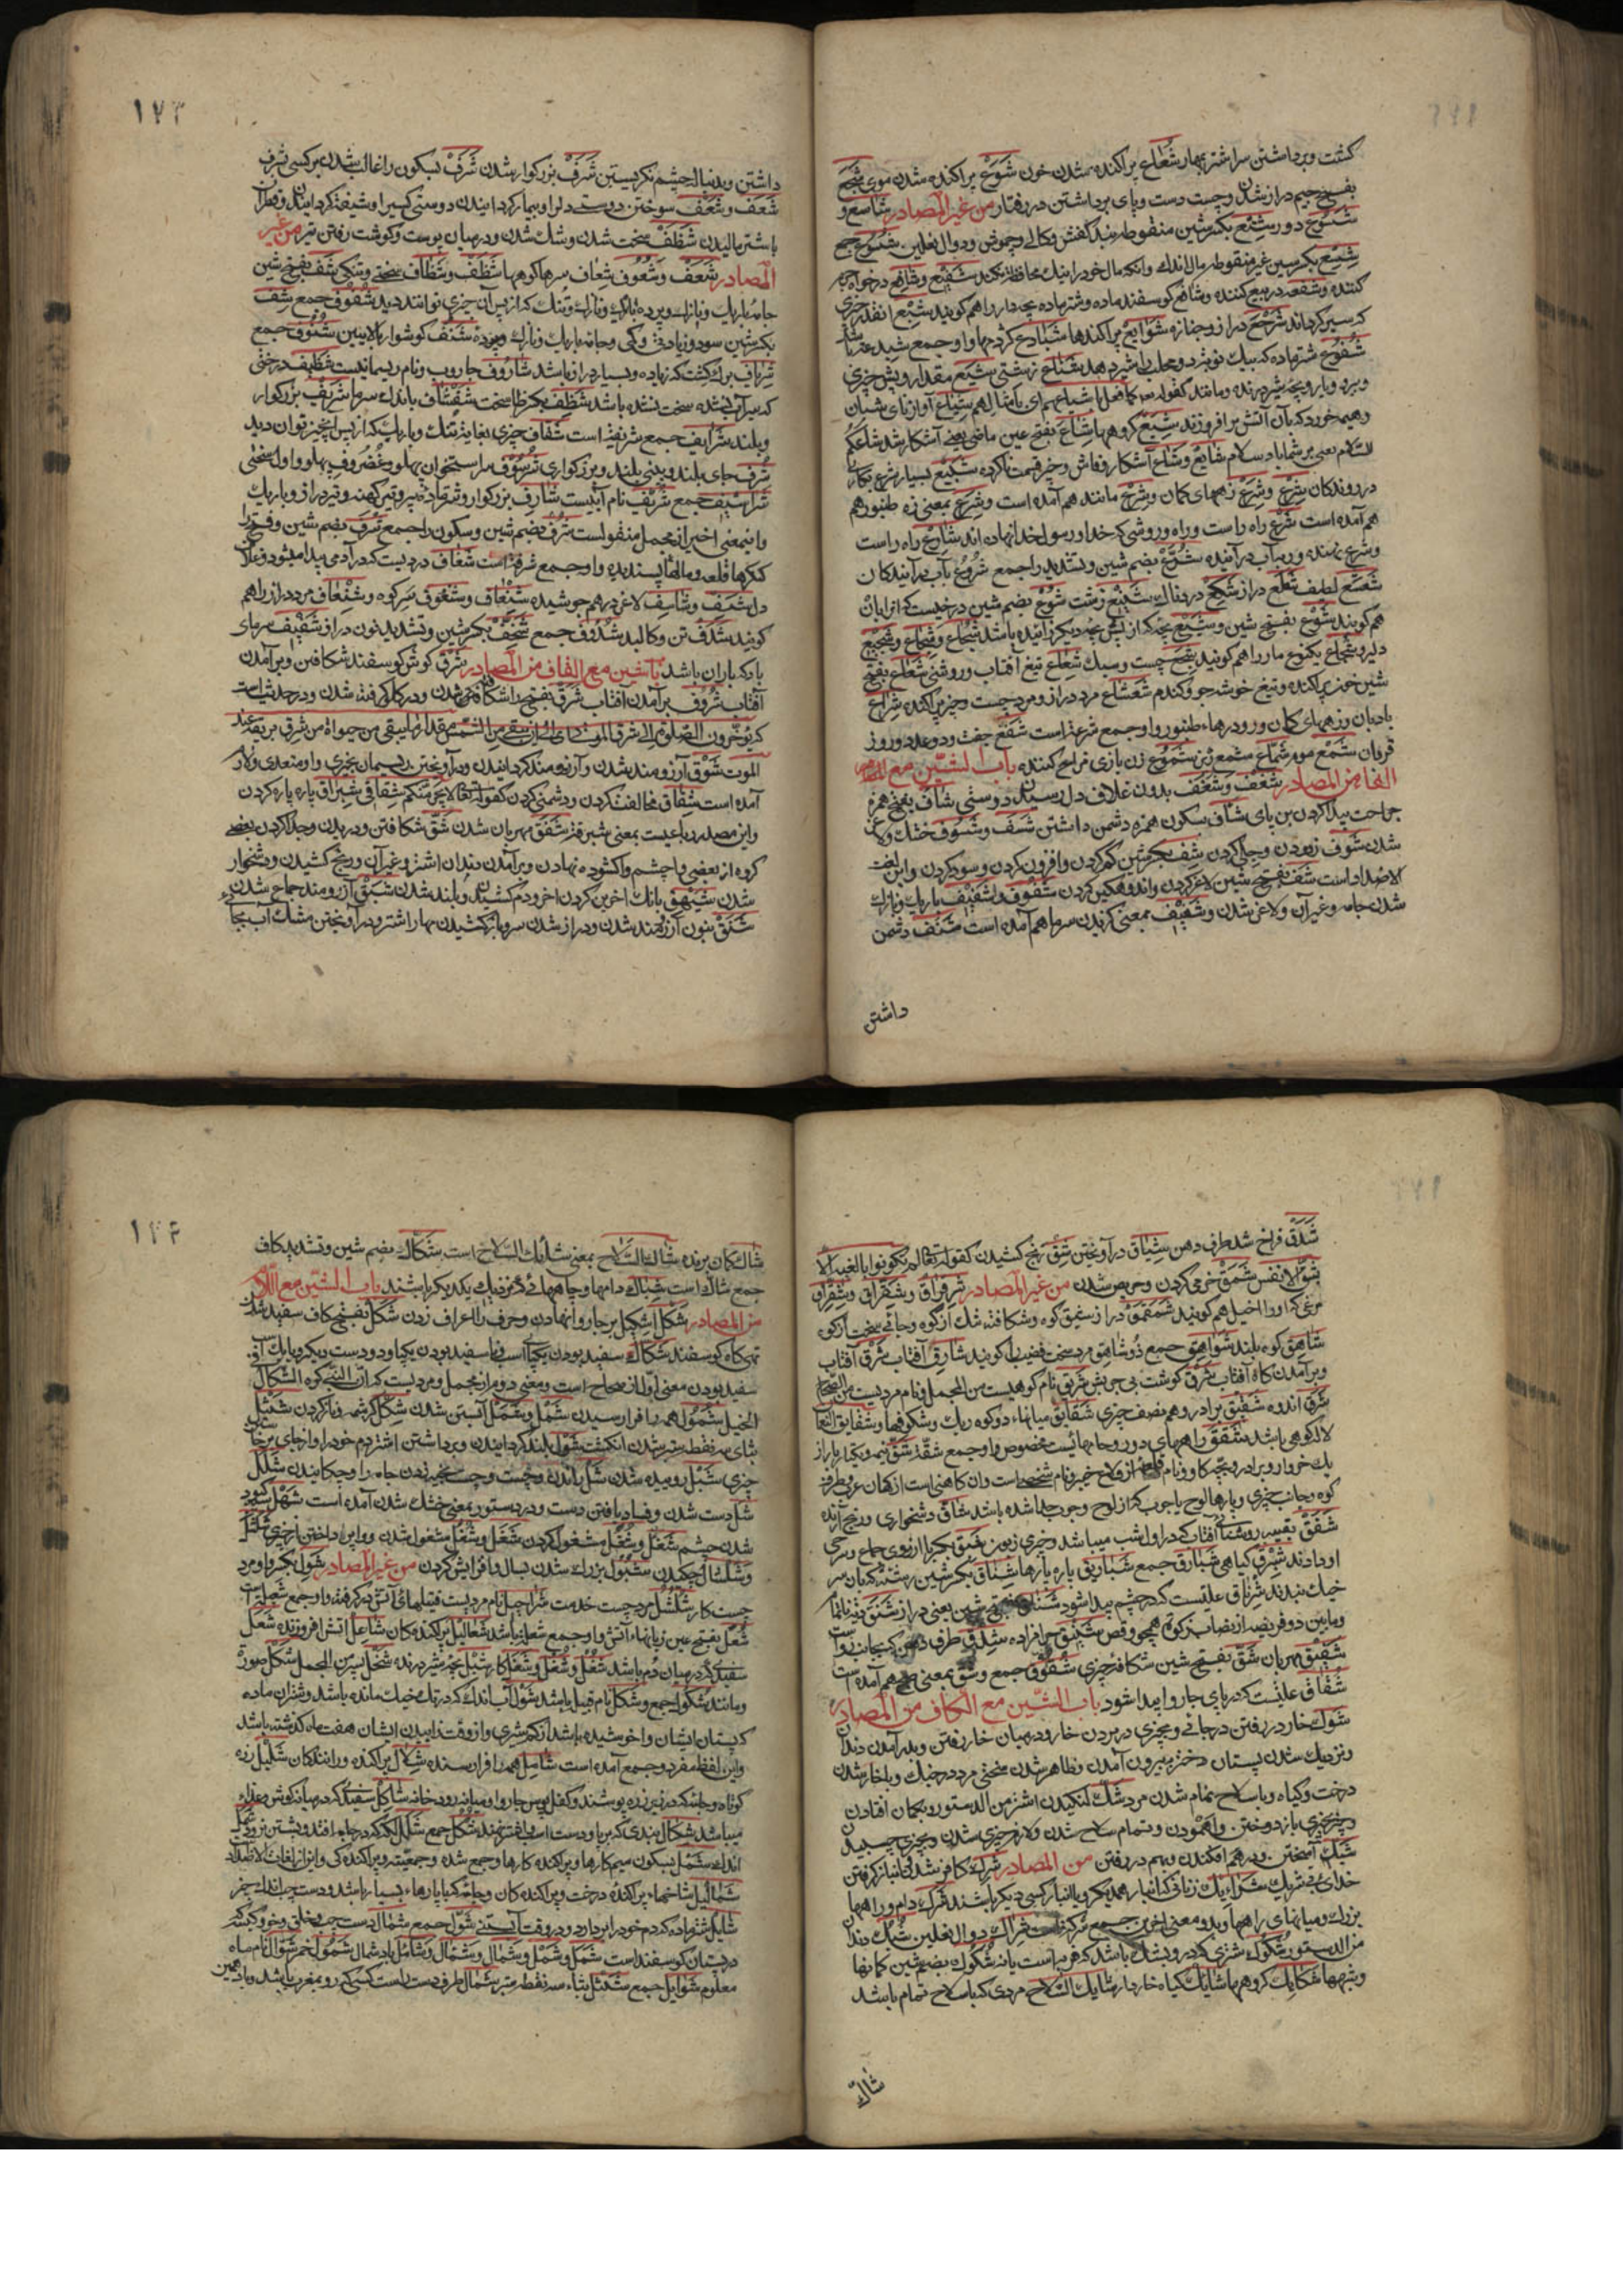 کشت و برداشتن سر اشتر بهار شعاع پراکنده شدن خون شوع پراکنده شدن موی شجع
بفتح جیم دراز شدن و چست دست و پای برداشتن در رفتار من غیر المصادر شاسع و
شسوع دور شسع بکسر شین منقوطه بند کفش و دوال نعلین شسوع جمع
شسع بکسر سین غیر منقوطه مال اندک وانکه مال خود را نیک محافظت کند شفیع و شافع درخواه
کننده و شفعه در بیع کننده و شافع کوسفند ماده و شتر ماده بچه دار را هم کویند شبع انقدر چیزی
که سیر کرداند شرجع دراز و جنازه شوایع پراکندها
شفوع شتر ماده که بیک نوبت دو محلب شیر دهد شناع زشتی شیع مقدار و پس چیزی
و پیرو و یار و بچه شیر درنده و مانند کقوله تعا کما فعل باشیاعهم ای بامثالهم شیاع آواز نای شبان
و هیمه خورد که بآن آتش برافروزند شیع کروهها شاع بفتح عین ماضی یعنی آشکار شد شاعکم
السلام یعنی بر شما باد سلام شایع و شاع آشکار و فاش و چیز قسمت ناکرده
در روندکان شرع و شرع زههای کمان و شرع مانند هم آمده است و شرع بمعنی زه طنبور هم
هم آمده است شرع راه راست و راه و روشی که خدا و رسول خدا نهاده اند شارع راه راست
و شرع نهنده و در آب در آینده شرع بضم شین و تشدید را جمع شروع بآب درآیندکان
شعشع لطیف شعلع دراز شنیع زشت شوع بضم شین درختیست که انرا بان
هم کویند شوع بفتح شین و شیع بچه که از پس بچه دیکر زائیده باشد شجاع و شجاع و شجیع
دلیر و شجاع یکنوع مار را هم کویند شجع چست و سبک شعاع تیغ آفتاب و روشنی شعاع بفتح
شین خون پراکنده و تیغ خوشه جو و کندم شعشاع مرد دراز و مرد چست و چیز پراکنده شراع
بادبان و زههای کمان و رودرهاء طنبور و او جمع شرعة است شفع جفت و دو عدد و روز
قربان شمع موم شماع شمع ریز شموع زن بازی و مزاح کننده باب الشین مع
الفا من المصادر شغف و شغف بدرون غلاف دل رسیدن دوستی شاف بفتح همزه
جراحت پیدا کردن بن پای شاف بسکون همزه دشمن داشتن شسف و شسوف خشک و لاغر
شدن شوف زدودن و جلی کردن شف بکسر شین کم کردن و افزون کردن و سود کردن و این لغت
الاضداد است شف بفتح شین لاغر کردن و اندوهکین کردن شفوف و شفیف باریک و نازک
شدن جامه و غیر آن و لاغر شدن و شفیف بمعنی کزیدن سرما هم آمده است شنف دشمن
داشتن
۱۷۳
داشتن و بدنبال چشم نکریستن شرف بزرکوار شدن شرف بسکون را غالب شدن بر کسی بشرف
شعف و شعف سوختن دوست دل را و بیمار کردانیدن دوستی کسی را و شیفته کردانیدن و قطران
باشتر مالیدن شظف سخت شدن و تنک شدن و درمیان پوست و کوشت رفتن تیر من غیر
المصادر شعف و شعوف شعاف سرهاء کوهها شظف و شظاف سختی و تنکی شف بفتح شین
جامه باریک و نازک و پرده باریک و نازک و تنک که از پس آن چیزی توانند دید شفوف جمع شف
بکسر شین سود و زیادتی و کمی و جامه باریک و نازک و پرده شنف کوشوار بالایین شنوف جمع
شرناف برک کشت که زیاده و بسیار دراز باشد شاروف جاروب و نام ریسمانیست شظیف درختی
که سیرآب نشده سخت نشده باشد شظف بکسر ظا سخت شفشاف باد اندک سرما شریف بزرکوار
و بلند شرایف جمع شریفة است شفاف چیزی بغایت تنک و باریک که از پس آن چیز توان دید
شرف جای بلند و بینی بلند و بزرکواری شرسوف سر استخوان پهلو و غضروف پهلو و اول سختی
شراسیف جمع شریف نام آبیست شارف بزرکوار و شتر ماده پیر و تیر کهنه و تیر دراز و باریک
و اینمعنی اخیر از مجمل منقولست شرف بضم شین و سکون را جمع شرف بضم شین و فتح را
کنکرها قلعه و مالهاء پسندیده و او جمع شرفة است شغاف دردیست که در آدمی پیدا میشود و غلاف
دل شسف و شاسف لاغر درهم جوشیده شنعاف و شنعوف سر کوه و شنعاف مرد دراز را هم
کویند شدف تن و کالبد شدوف جمع شخف بکسر شین و تشدید نون دراز شفیف سرمای
باد که باران باشد باب الشین مع القاف من المصادر شرق کوش کوسفند شکافتن و برآمدن
آفتاب شروق برآمدن آفتاب شرق بفتح را شکافته شدن و در کلو کرفته شدن و در حدیث است
که یؤخرون الصلوة الی شرق الموتی ای الی ان یبقی من الشمس مقدار ما یبقی من حیوة من شرق بریقه عند
الموت شوق آرزومند شدن و آرزومند کردانیدن و در آویختن ریسمان بچیزی و او متعدی و لازم
آمده است شقاق مخالفت کردن و دشمنی کردن کقوله تعالی لا یجرمنکم شقاقی شبراق پاره پاره کردن
و این مصدر رباعیست بمعنی شبرقة شفق مهربان شدن شق شکافتن و دریدن و جدا کردن بعضی
کروه از بعضی و چشم واکشوده نهادن و برآمدن دندان اشتر و غیر آن و رنج کشیدن و دشخوار
شدن شهیق بانک اخرین کردن اخر و دم کشیدن و بلند شدن شبق آرزومند جماع شدن
شنق بنون آرزومند شدن و دراز شدن سر و باز کشیدن مهار اشتر و درآویختن مشک آب بجائی
شدق فراخ شدن طرف دهن شیاق درآویختن شق رنج کشیدن کقوله تعالی لم تکونوا بالغیه الا
بشق الانفس شمق خرمی کردن و حریص شدن من غیر المصادر شرقراق و شقراق و شقراق
مرغی که او را اخیل هم کویند شمقمق دراز شیق کوه و شکافته تنک از کوه و جائی سخت از کوه
شاهق کوه بلند شواهق جمع ذو شاهق مرد سخت غضب را کویند شارق آفتاب شرق آفتاب
و برآمدن کاه آفتاب شرق کوشت بی چربش شریق نام کوهیست من المجمل و نام مردیست من الصحاح
شرق اندوه شقیق برادر و هم نصف چیزی شقایق میانهاء دو کوه ریک و شکوفها و شقایق النعما
لاله کوهی باشد شقق راههای دور و جامهائیست مخصوص و او جمع شقة شق نیمه و یکپاره از
یک خروار و برادر و بچه کاو و نام قلعه از قلاع خیبر و نام شخصی است و ان کاهنی است از کهان عرب و طرف
کوه و جانب چیزی و پارهاء لوح یا چوب که از لوح و چوب جدا شده باشد شاق دشخواری و رنج آرنده
شفق بقیه روشنائی آفتاب که در اول شب میباشد و چیزی زبون شبق بکسر با آرزوی جماع و سرخی
او دادند شبرق کیاهی شبارق جمع شباریق پاره پارها شناق بکسر شین رشته که بآن سر
خیک بندند شرناق علتیست که در چشم پیدا شود بفتح شین یعنی دراز شنق
و مابین دو فریضه از نصاب زکوة شدق طرف دهن
شفیق مهربان شق بفتح شین شکافته چیزی شقوق جمع و شق بمعنی صبح هم آمده است
شقاق علتیست که در پای چاروا پیدا شود باب الشین مع الکاف من المصادر
شوک خار در رفتن در جائی و بچیزی در بردن خار و درمیان خار رفتن و بدر آمدن دندان
و نزدیک شدن پستان دختر به بیرون آمدن و ظاهر شدن سختی مرد در جنک و با خار شدن
درخت و کیاه و با سلاح تمام شدن مرد شک لنکیدن اشتر من الدستور و بکمان افتادن
و چیز بچیزی باز دوختن و تمام سلاح شدن و لازم چیزی شدن و بچیزی چسبیدن
شبک آمیختن و درهم افکندن و بهم در رفتن من المصادر شرک کافر شدن و انباز کرفتن
خدایرا شریک شرایک زنانی که انباز همدیکر یا انباز کسی دیکر باشند شرک دام و راهها
بزرک و میانهای راهها و بدو معنی اخرین جمع شرکة است شراک دوال نعلین شبک دندا
من الدستور شکوک شتری که در و بشک باشد که فربه است یا نه شکوک بضم شین کمانها
و شبهها شکایک کروهها شایک کیاه خاردار شایک السلاح مردی که باسلاح تمام باشد
شاک
۱۷۴
شاک کمان برنده شاک السلاح بمعنی شایک السلاح است شکاک بضم شین و تشدید کاف
جمع شاک است شباک دامها و چاههائی که نزدیک یکدیکر باشند باب الشین مع اللام
من المصادر شکل اشکیل بر چاروا نهادن و حرف را اعراب زدن شکل بفتح کاف سفید شدن
تهی کاه کوسفند شکال سفید بودن یکپای اسب و یا سفید بودن یکپا و دو دست و یکدو پا
سفید بودن معنی اول از صحاح است و معنی دوم از مجمل و مرویست که ان النبی کره الشکال
الخیل شمول همه را فرا رسیدن شمل و شمل آبستن شدن شکل کرشمه و ناز کردن شثل
بثای سه نقطه ستبر شدن انکشت شول بلند کردانیدن و برداشتن اشتر دم خود را و از جای برخا
چیزی شبل رومیده شدن شل راندن و چست و چست بخیه زدن جامه را و چکانیدن شلل
شل دست شدن و فساد یافتن دست و در دستور بمعنی خشک شدن آمده است شهل سیه کبود
شدن چشم شغل و شغل مشغول کردن شغل و شغل مشغول شدن و واپرداختن از چیزی شلشل
و شلشال چکیدن شبول بزرک شدن بسال و افزایش کردن من غیر المصادر شول بکسر واو مرد
چست کار شلشل مرد چست خدمت شراحیل نام مردیست فتیلهائی آتش در کرفته و او جمع شعیلة است
شعل بفتح عین زبانهاء آتش و او جمع شعلة باشد شعالیل پراکنده کان شاعل اتش افروزنده شعل
سفیدی که در میان دم باشد شغل و شغل و شغل کار شبل بچه شیر درنده شخل پسر من المجمل شکل صورة
و مانند شکول جمع و شکل نام قبیله باشد شول آب اندک که در تک خیک مانده باشد و شتران ماده
که پستان ایشان واخوشیده باشد از کم شیری و از وقت زاییدن ایشان هفت ماه کذشته باشد
و این لفظ مفرد و جمع آمده است شامل همه را فرا رسنده شلال پراکنده و رانندکان شلیل زره
کوتاه و جامه که در زیر زره پوشند و کفل پوس چاروا و میانه رود خانه شاکل سفیدی که در میانه کوش
میباشد شکال بندی که بر پا و دست اسب و استر نهند شکل جمع شکل
اندک شمل بسکون میم کارها و پراکنده کارها و جمع شده و جمعیة و پراکنده کی و این از لغات الاضداد
شمالیل شاخهاء پراکنده درخت و پراکنده کان و جامه کیا پارهاء بسیار باشد و دست چپ اندک چیز
شایل شتر ماده که دم خود را بردارد در وقت آبستنی شول جمع شمال دست چپ و خلق و خو و کیسه که
در پستان کوسفند است شمل و شمل و شمال و شمأل و شامل باد شمال شمول خمر شوال نام ماه
معلوم شوایل جمع شثل بثاء سه نقطه ستبر شمال طرف دست راست کسی که رو بمغرب باشد و باد همین